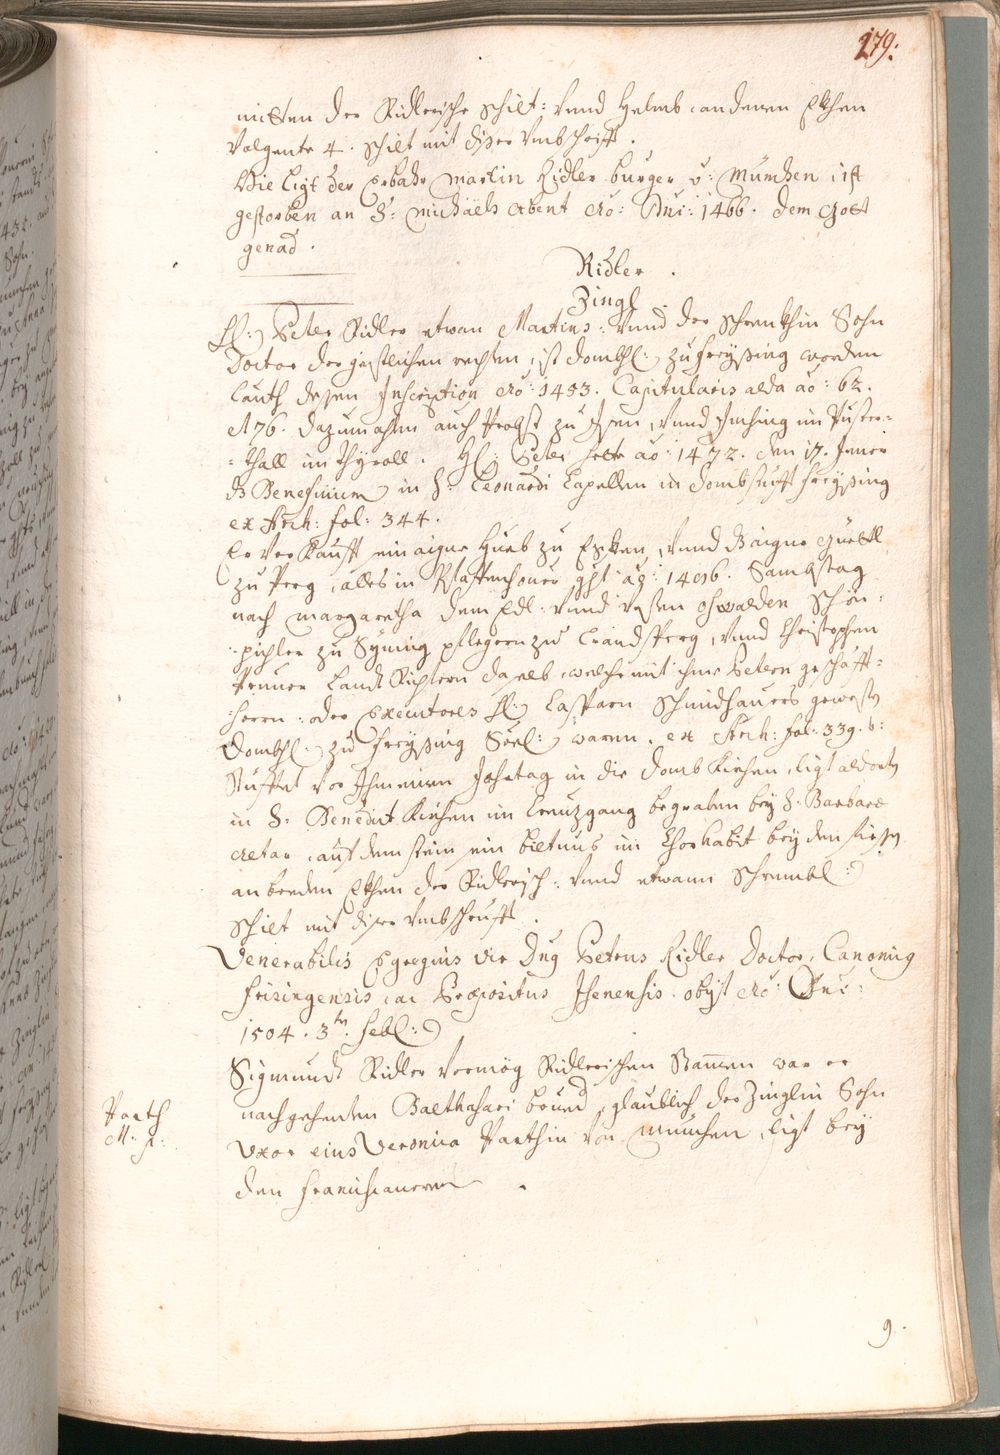 179.
mitten der Ridlerische Schilt: vnnd Helmb, an denen Ekhen
volgente 4. Schilt mit diser Vmbschrifft.
Hie ligt der Erbahr Martin Ridler burger z: München, ist
gestorben an S: Michaels Abent Ao: Dni: 1466. dem Gott
genad.
Ridler.
Zingl
H: Peter Ridler etwan Martins: vnnd der Schrenkhin Sohn
Doctor der geistlichen rechten, ist Dombh: zu Freysing worden
lauth dessen Inscription Ao: 1453. Capitularis alda ao: 62.
et 76. dazumahlen auch Probst zu Isen, vnnd Inching im Puster=
=thall im Thyroll. H: Peter hette ao: 1472. den 17. Jener
ds Beneficium in S: Leonardi Capellen in Dombstüfft Freysing
ex Hech: fol: 344.
Er verkaufft ein aigne Hueb zu Esken, vnnd ds aigne Güettl
zu Perg, alles in Pfaffenhover ght ao: 1496. Sambstag
nach Margaretha dem Edl: vnnd vesten Oswalden Schön=
=pichler zu Syning pflegern zu Crandsperg, vnnd Christophen
Prunner Landt Richtern daselb, welche mit ihme Petern geschäfft=
=herrn: oder Executores H: Casparn Schmidhauers gewesten
Dombh: zu Freysing Seel: waren. ex Hech: fol: 339. b:
Stüfftet vor Ihme einen Jahrtag in die Domb Kirchen, ligt aldorten
in S: Benedict Kirchen im Creuzgang begraben bey S: Barbarae
Altar, auf dem stein ein biltnus im Chorhabit bey den füessen
an beeden Ekhen der Ridlerisch: vnnd etwann Schrenkh:
Schilt mit diser Vmbschrifft.
Venerabilis Egregius vir Dns Petrus Ridler Doctor, Canonicus
Frisingensis, ac Praepositus Isenensis. obijt Ao: Dni:
1504. 3tn. Febr:
Sigmundt Ridler vermög Ridlerischen Stammen war er
nachgehenten Balthasari brued, glaublich der Zinglin Sohn
Vxor eius Veronica Parthin von München, ligt bey
den Franciscanern.
Parth
M. f:
9.